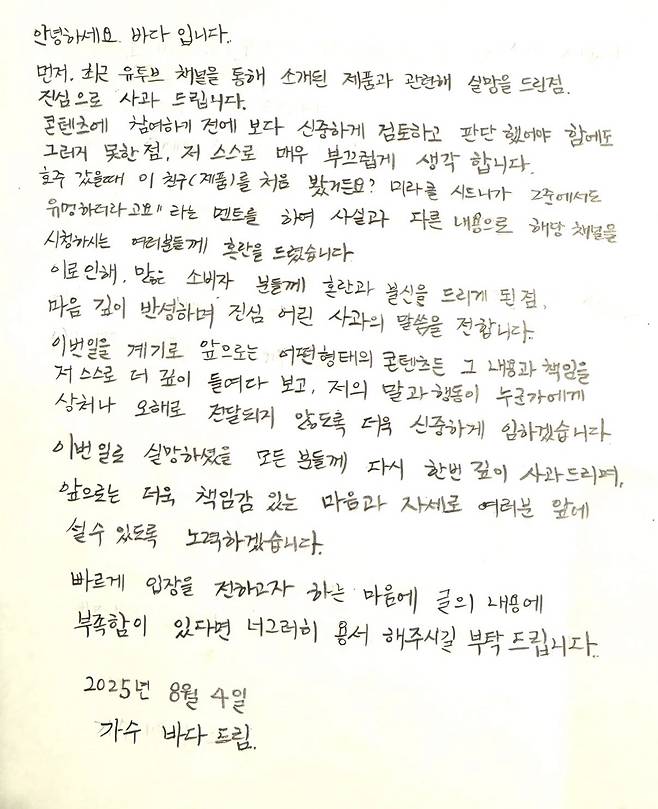 안녕하세요. 바다 입니다.
먼저, 최근 유투브 채널을 통해 소개된 제품과 관련해 실망을 드린점.
진심으로 사과 드립니다.
콘텐츠에 참여하기 전에 보다 신중하게 검토하고 판단 했어야 함에도
그러지 못한 점, 저 스스로 매우 부끄럽게 생각 합니다.
호주 갔을때 이 친구(제품)를 처음 봤거든요? 미라클 시드니가 그곳에서도
유명하더라고요" 라는 멘트를 하여 사실과 다른 내용으로 해당 채널을
시청하시는 여러분들께 혼란을 드렸습니다.
이로인해, 많은 소비자 분들께 혼란과 불신을 드리게 된 점,
마음 깊이 반성하며 진심 어린 사과의 말씀을 전합니다.
이번일을 계기로 앞으로는 어떤형태의 콘텐츠든 그 내용과 책임을
저 스스로 더 깊이 들여다 보고, 저의 말과 행동이 누군가에게
상처나 오해로 전달되지 않도록 더욱 신중하게 임하겠습니다
이번일로 실망하셨을 모든 분들께 다시 한번 깊이 사과드리며,
앞으로는 더욱 책임감 있는 마음과 자세로 여러분 앞에
설수 있도록 노력하겠습니다.
빠르게 입장을 전하고자 하는 마음에 글의 내용에
부족함이 있다면 너그러히 용서 해주시길 부탁 드립니다.
2025년 8월 4일
가수 바다 드림.